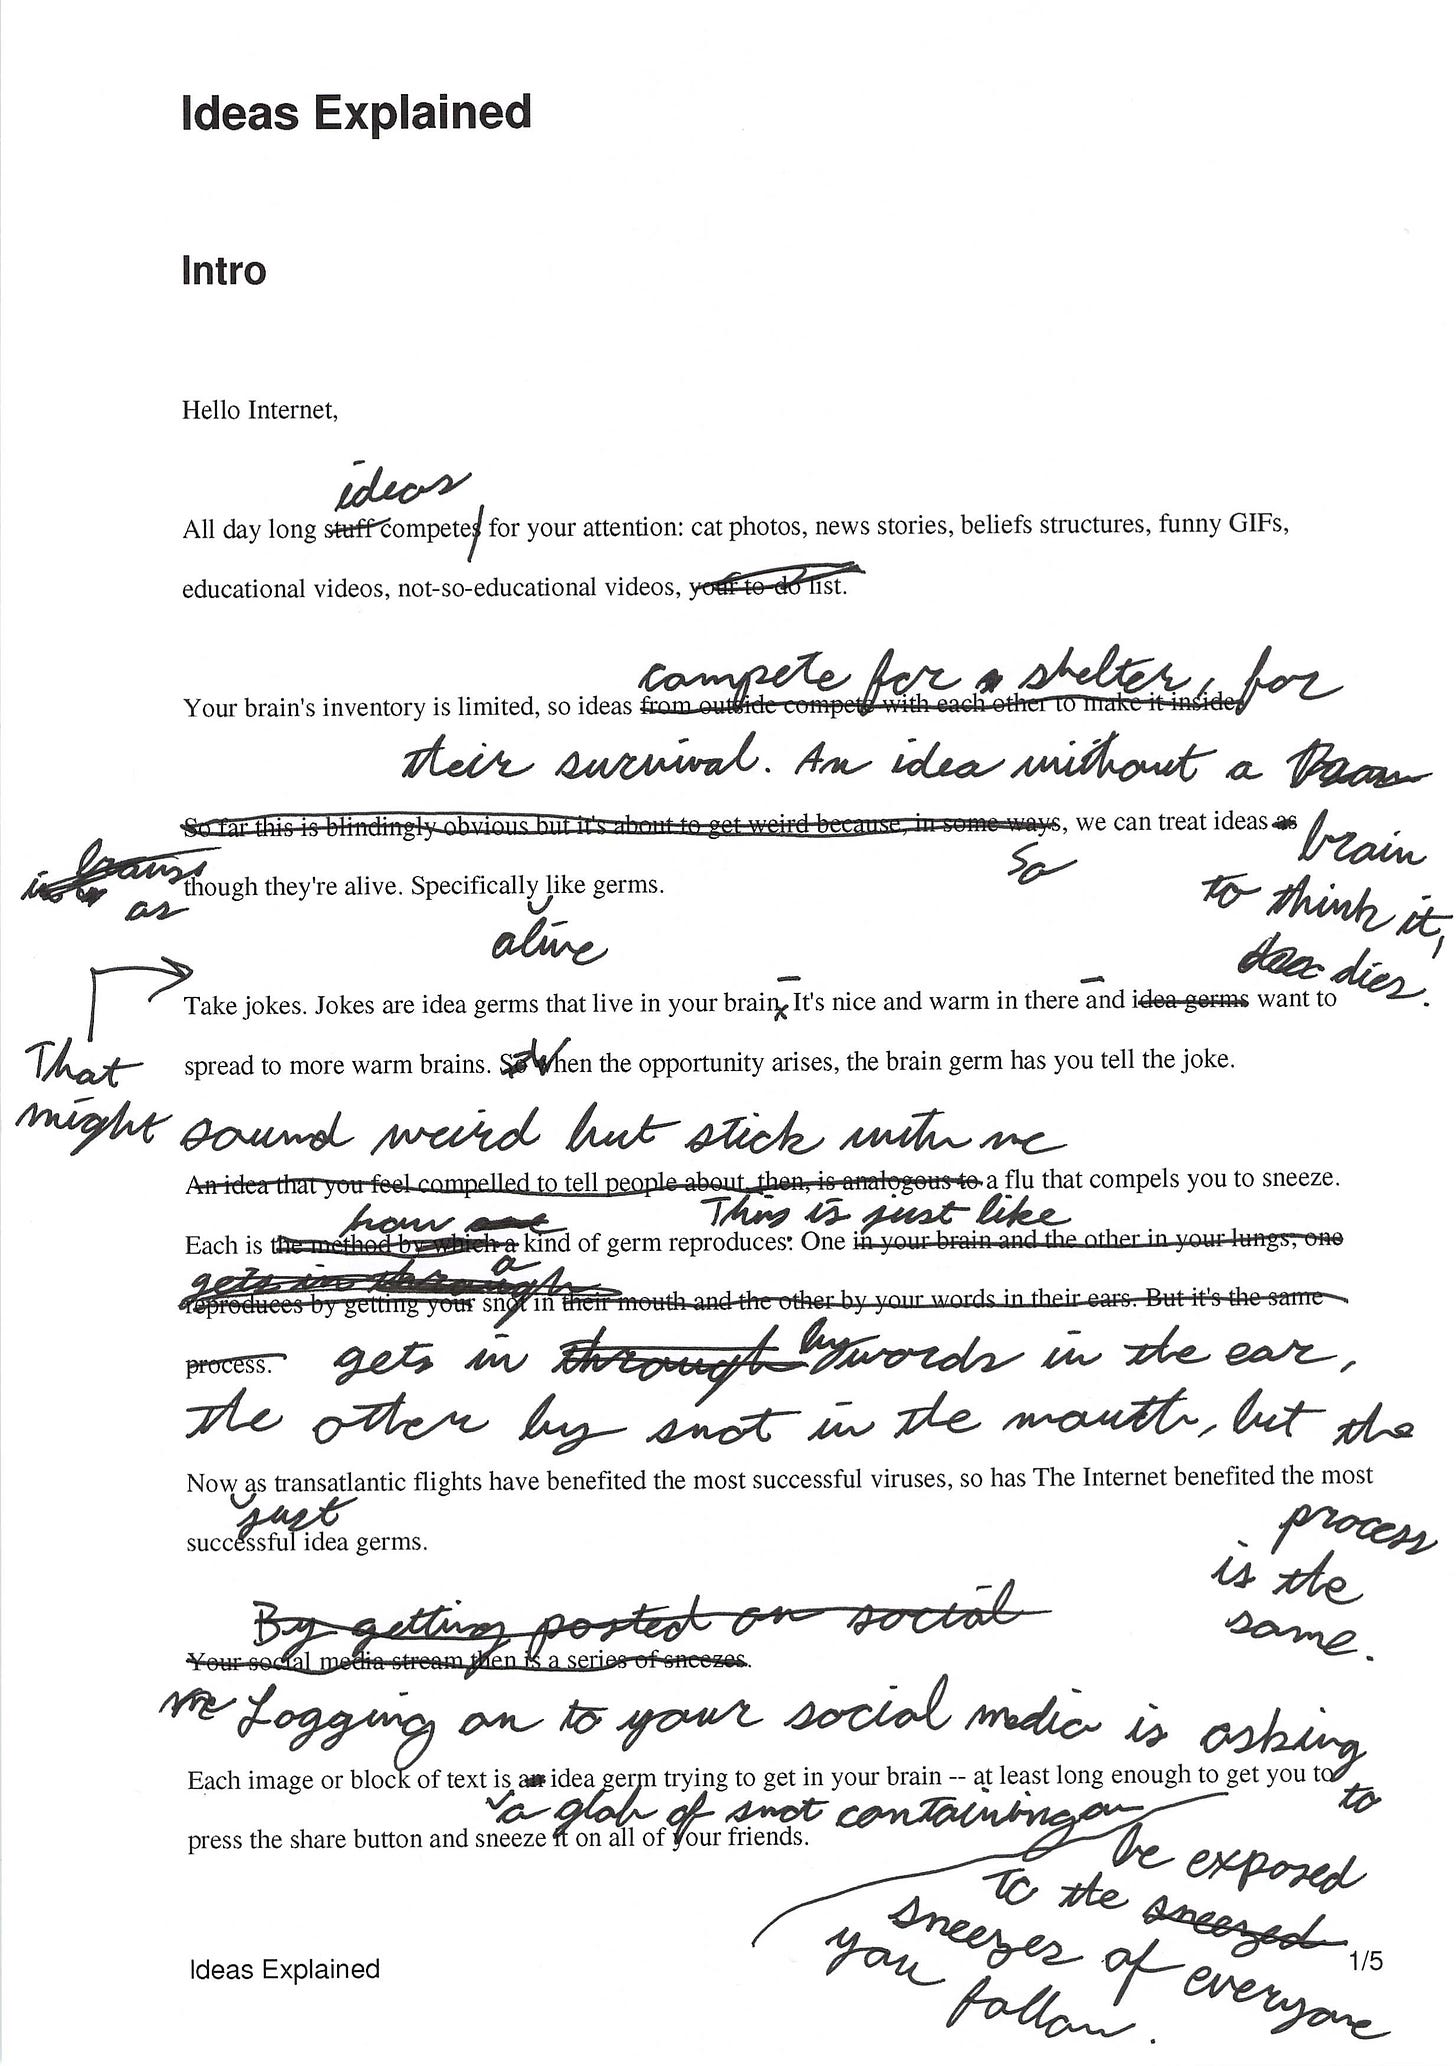 Ideas Explained
Intro
Hello Internet,
ideas
All day long stuff competes for your attention: cat photos, news stories, beliefs structures, funny GIFs,
educational videos, not-so-educational videos, your to-do list.
compete for shelter, for
Your brain's inventory is limited, so ideas from outside compete with each other to make it inside.
their survival. An idea without a
So far this is blindingly obvious but it's about to get weird because, in some ways, we can treat ideas as
brain
brains
so
though they're alive. Specifically like germs.
as
to think it,
alive
dies.
Take jokes. Jokes are idea germs that live in your brain. It's nice and warm in there and idea germs want to
That
spread to more warm brains. So when the opportunity arises, the brain germ has you tell the joke.
might sound weird but stick with me
An idea that you feel compelled to tell people about, then, is analogous to a flu that compels you to sneeze.
how This is just like
Each is the method by which a kind of germ reproduces: One in your brain and the other in your lungs, one
gets in through a
reproduces by getting your snot in their mouth and the other by your words in their ears. But it's the same
process. gets in through by words in the ear,
the other by snot in the mouth, but the
Now as transatlantic flights have benefited the most successful viruses, so has The Internet benefited the most
just
process
successful idea germs.
is the
same.
By getting posted on social
Your social media stream then is a series of sneezes.
Logging on to your social media is asking
Each image or block of text is an idea germ trying to get in your brain -- at least long enough to get you to
to
a glob of snot containing an
press the share button and sneeze it on all of your friends.
be exposed
to the sneezed
sneezes of everyone
you follow.
Ideas Explained 1/5